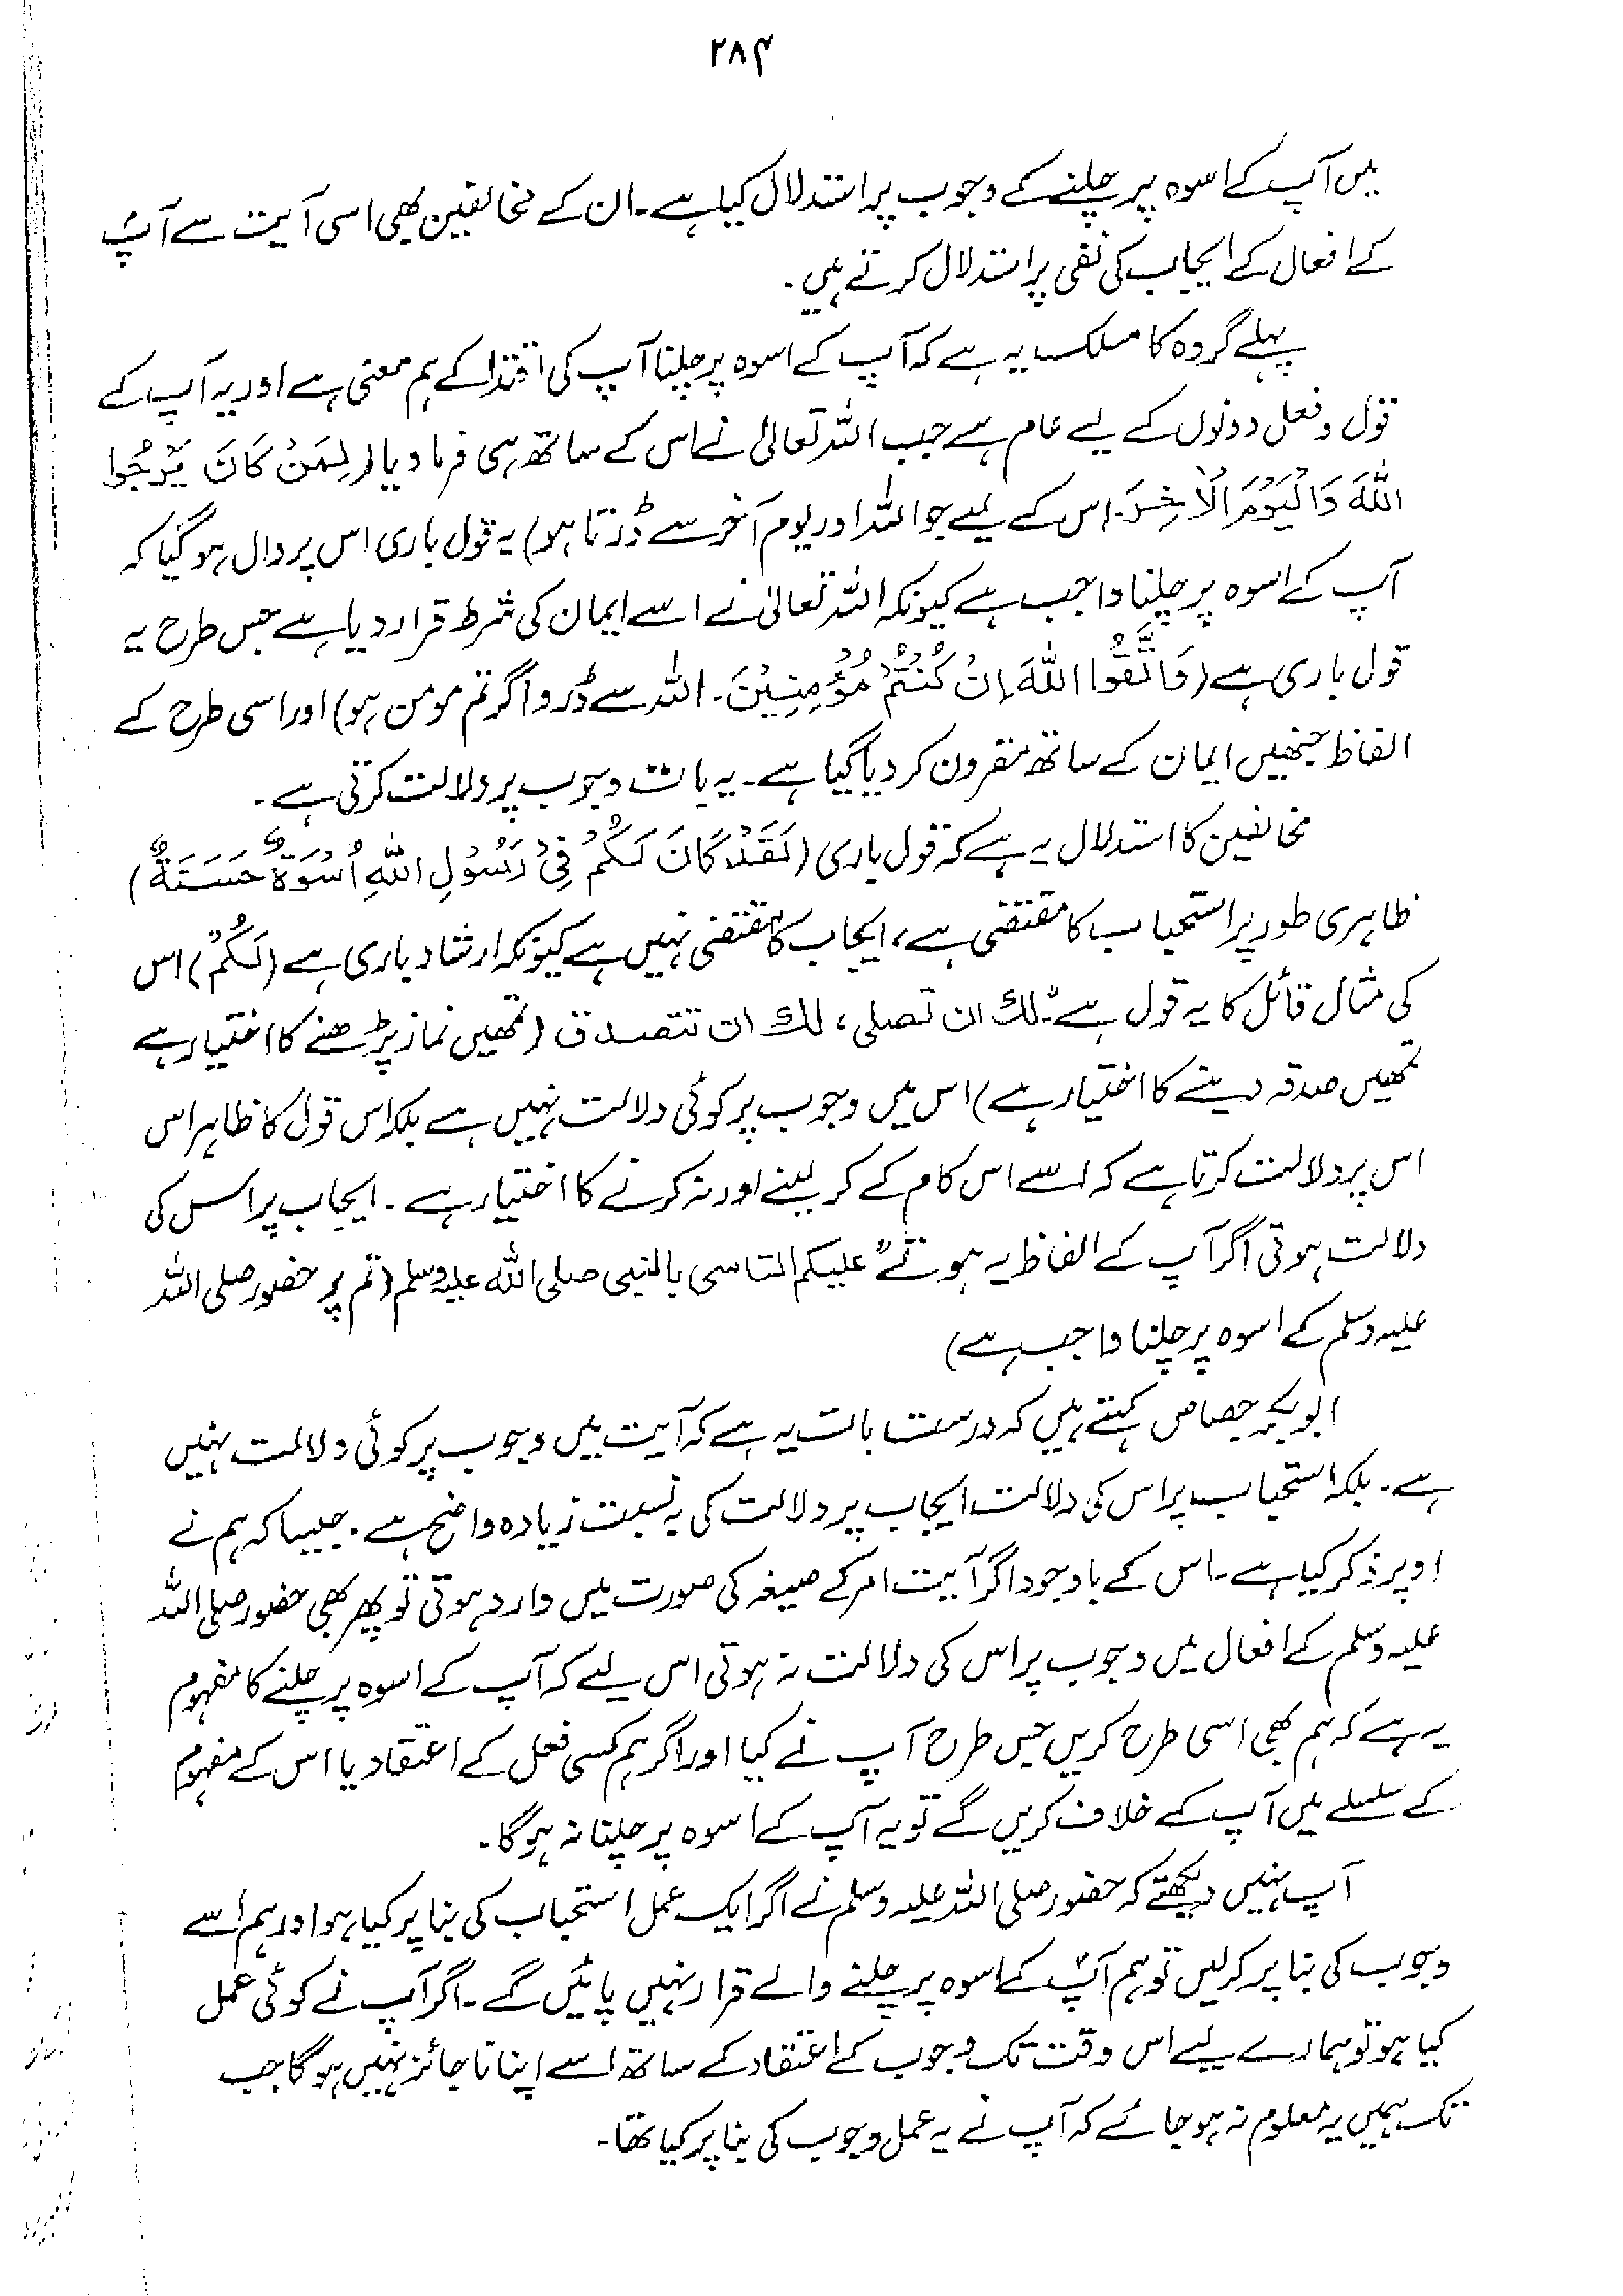 ۲۸۴
میں آپ کے اسوہ پر چلنے کے وجوب پر استدلال کیا ہے۔ ان کے مخالفین بھی اسی آیت سے آپؐ
کے افعال کے ایجاب کی نفی پر استدلال کرتے ہیں۔
پہلے گروہ کا مسلک یہ ہے کہ آپ کے اسوہ پر چلنا آپ کی اقتدا کے ہم معنی ہے اور یہ آپ کے
قول و فعل دونوں کے لیے عام ہے جب اللہ تعالیٰ نے اس کے ساتھ ہی فرما دیا (لِمَنْ كَانَ يَرْجُوا
اللّٰهَ وَالْيَوْمَ الْاٰخِرَ۔ اس کے لیے جو اللہ اور یوم آخر سے ڈرتا ہو) یہ قول باری اس پر دال ہو گیا کہ
آپ کے اسوہ پر چلنا واجب ہے کیونکہ اللہ تعالیٰ نے اسے ایمان کی شرط قرار دیا ہے جس طرح یہ
قول باری ہے (فَاتَّقُوا اللّٰهَ اِنْ كُنْتُمْ مُّؤْمِنِيْنَ۔ اللہ سے ڈرو اگر تم مومن ہو) اور اسی طرح کے
الفاظ جنھیں ایمان کے ساتھ مقرون کر دیا گیا ہے۔ یہ بات وجوب پر دلالت کرتی ہے۔
مخالفین کا استدلال یہ ہے کہ قول باری (لَقَدْ كَانَ لَكُمْ فِيْ رَسُوْلِ اللّٰهِ اُسْوَةٌ حَسَنَةٌ)
ظاہری طور پر استحباب کا مقتضی ہے، ایجاب کا مقتضی نہیں ہے کیونکہ ارشاد باری ہے (لَكُمْ) اس
کی مثال قائل کا یہ قول ہے "لك ان تصلی، لك ان تتصدق (تمھیں نماز پڑھنے کا اختیار ہے
تمھیں صدقہ دینے کا اختیار ہے) اس میں وجوب پر کوئی دلالت نہیں ہے بلکہ اس قول کا ظاہر اس
اس پر دلالت کرتا ہے کہ اسے اس کام کے کر لینے اور نہ کرنے کا اختیار ہے۔ ایجاب پر اس کی
دلالت ہوتی اگر آپ کے الفاظ یہ ہوتے "علیکم التاسی بالنبی صلی اللہ علیہ وسلم (تم پر حضور صلی اللہ
علیہ وسلم کے اسوہ پر چلنا واجب ہے)
ابوبکر جصاص کہتے ہیں کہ درست بات یہ ہے کہ آیت میں وجوب پر کوئی دلالت نہیں
ہے۔ بلکہ استحباب پر اس کی دلالت ایجاب پر دلالت کی بہ نسبت زیادہ واضح ہے۔ جیسا کہ ہم نے
اوپر ذکر کیا ہے۔ اس کے باوجود اگر آیت امر کے صیغہ کی صورت میں وارد ہوتی تو پھر بھی حضور صلی اللہ
علیہ وسلم کے افعال میں وجوب پر اس کی دلالت نہ ہوتی اس لیے کہ آپ کے اسوہ پر چلنے کا مفہوم
یہ ہے کہ ہم بھی اسی طرح کریں جس طرح آپ نے کیا اور اگر ہم کسی فعل کے اعتقاد یا اس کے مفہوم
کے سلسلے میں آپ کے خلاف کریں گے تو یہ آپ کے اسوہ پر چلنا نہ ہوگا۔
آپ نہیں دیکھتے کہ حضور صلی اللہ علیہ وسلم نے اگر ایک عمل استحباب کی بنا پر کیا ہو اور ہم اسے
وجوب کی بنا پر کر لیں تو ہم آپؐ کے اسوہ پر چلنے والے قرار نہیں پائیں گے۔ اگر آپ نے کوئی عمل
کیا ہو تو ہمارے لیے اس وقت تک وجوب کے اعتقاد کے ساتھ اسے اپنانا جائز نہیں ہوگا جب
تک ہمیں یہ معلوم نہ ہو جائے کہ آپ نے یہ عمل وجوب کی بنا پر کیا تھا۔